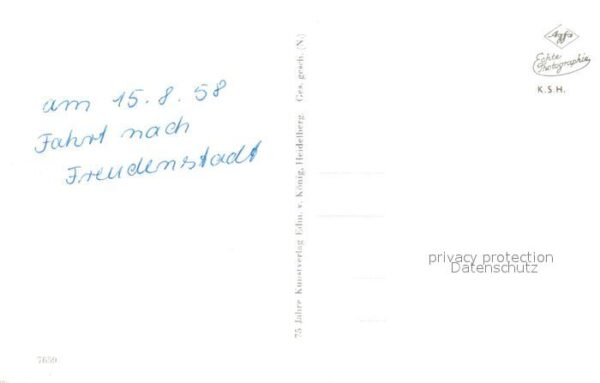 am 15.8.58
Fahrt nach
Freudenstadt
75 Jahre Kunstverlag Edm. v. König, Heidelberg Ges. gesch. (N.)
Agfa
Echte
Photographie
K.S.H.
privacy protection
Datenschutz
7659